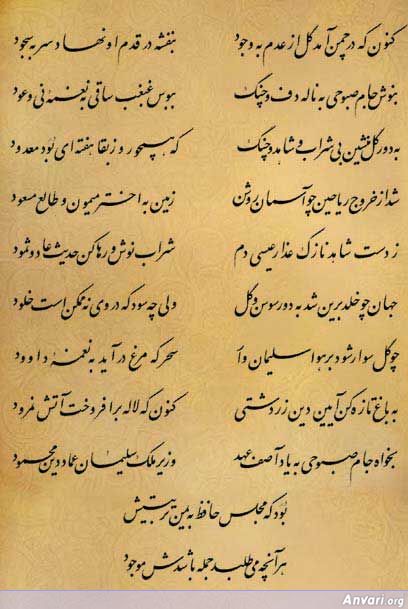 کنون که در چمن آمد گل از عدم به وجود بنفشه در قدم او نهاد سر به سجود
بنوش جام صبوحی به ناله دف و چنگ ببوس غبغب ساقی به نغمه نی و عود
به دور گل منشین بی شراب و شاهد و چنگ که همچو روز بقا هفته ای بود معدود
شد از خروج ریاحین چو آسمان روشن زمین به اختر میمون و طالع مسعود
ز دست شاهد نازک عذار عیسی دم شراب نوش و رها کن حدیث عاد و ثمود
جهان چو خلد برین شد به دور سوسن و گل ولی چه سود که در وی نه ممکن است خلود
چو گل سوار شود بر هوا سلیمان وار سحر که مرغ درآید به نغمه داوود
به باغ تازه کن آیین دین زردشتی کنون که لاله برافروخت آتش نمرود
بخواه جام صبوحی به یاد آصف عهد وزیر ملک سلیمان عماد دین محمود
بود که مجلس حافظ به یمن تربیتش
هر آنچه می طلبد جمله باشدش موجود
Anvari.org